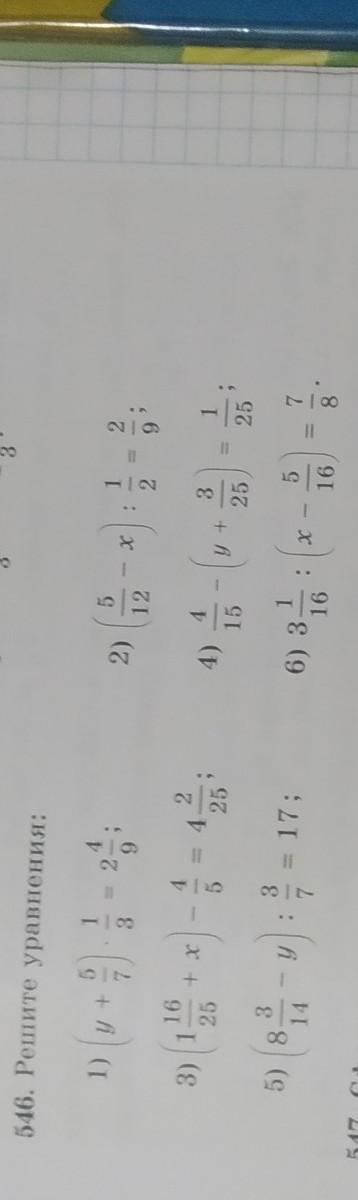 546. Решите уравнения:
1) (y + 5/7) · 1/3 = 2 4/9; 2) (5/12 − x) : 1/2 = 2/9;
3) (1 16/25 + x) − 4/5 = 4 2/25; 4) 4/15 − (y + 3/25) = 1/25;
5) (8 3/14 − y) : 3/7 = 17; 6) 3 1/16 : (x − 5/16) = 7/8.
547.